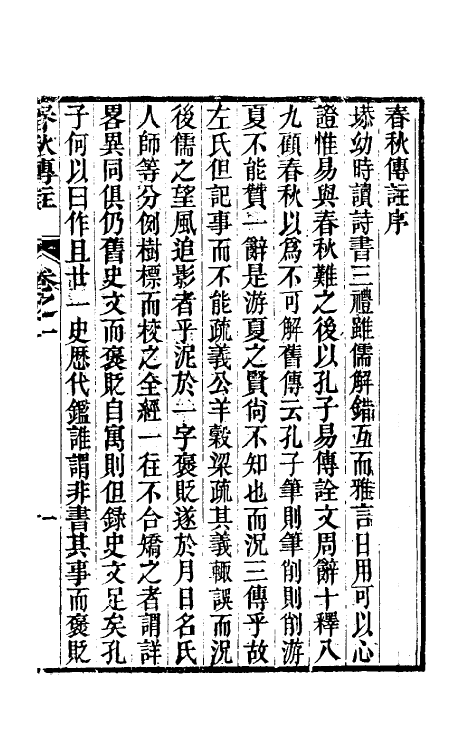 春秋傳註序
塨幼時讀詩書三禮雖儒解錯互而雅言日用可以心
證惟易與春秋難之後以孔子易傳詮文周辭十釋八
九顧春秋以爲不可解舊傳云孔子筆則筆削則削游
夏不能贊一辭是游夏之賢尚不知也而況三傳乎故
左氏但記事而不能疏義公羊穀梁疏其義輒誤而況
後儒之望風追影者乎泥於一字褒貶遂於月日名氏
人師等分例樹標而校之全經一往不合矯之者謂詳
畧異同俱仍舊史文而褒貶自寓則但錄史文足矣孔
子何以曰作且廿一史歷代鑑誰謂非書其事而褒貶
春秋傳註
卷之一
一